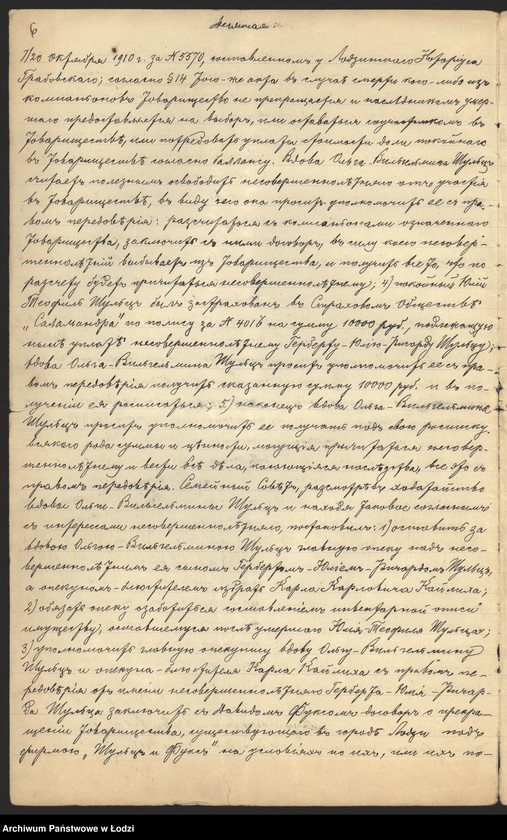 6
7/20 октября 1910 г. за № 5570, составленном у Лодзинского Нотаріуса
Грабовскаго; согласно § 14 того-же акта в случаѣ смерти кого-либо изъ
компаніоновъ Товарищество не прекращается и наслѣдникамъ умер-
шаго предоставляется на выборъ, или оставаться соучастникомъ въ
Товариществѣ, или потребовать уплаты стоимости доли покойнаго
въ Товариществѣ согласно балансу. Вдова Ольга-Вильгельмина Шульцъ
считаетъ полезнымъ освободить несовершеннолѣтняго отъ участія
въ Товариществѣ, въ виду чего она проситъ уполномочить ее съ пра-
вомъ передовѣрія: разсчитаться съ компаніонами означеннаго
Товарищества, заключить съ ними договоръ, въ силу коего несовер-
шеннолѣтній выбываетъ изъ Товарищества, и получить все то, что по
разсчету будетъ причитаться несовершеннолѣтнему; 4) покойный Юлій
Теофиль Шульцъ былъ застрахованъ въ Страховомъ Обществѣ
„Саламандра" по полису за № 4016 на сумму 10000 руб., подлежащую
нынѣ уплатѣ несовершеннолѣтнему Герберту-Юлію-Ричарду Шульцу;
вдова Ольга-Вильгельмина Шульцъ проситъ уполномочить ее съ пра-
вомъ передовѣрія получить сказанную сумму 10000 руб. и въ по-
лученіи ея росписаться; 5) наконецъ вдова Ольга-Вильгельмина
Шульцъ проситъ уполномочить ее получать подъ свою расписку
всякого рода суммы и цѣнности, могущія причитаться несовер-
шеннолѣтнему и вести всѣ дѣла, касающіяся наслѣдства, все это съ
правомъ передовѣрія. Семейный Совѣтъ, разсмотрѣвъ ходатайство
вдовы Ольги-Вильгельмины Шульцъ и находя таковое согласнымъ
съ интересами несовершеннолѣтняго, постановилъ: 1) оставить за
вдовою Ольгою-Вильгельминою Шульцъ главную опеку надъ несо-
вершеннолѣтнимъ ея сыномъ Гербертомъ-Юліемъ-Ричардомъ Шульцъ,
а опекуномъ-блюстителемъ избрать Карла Карловича Каймиха;
2) обязать опеку озаботиться составленіемъ инвентарной описи
имуществу, оставшемуся послѣ умершаго Юлія-Теофиля Шульца;
3) уполномочить главную опекуншу вдову Ольгу-Вильгельмину
Шульцъ и опекуна-блюстителя Карла Каймиха съ правомъ пе-
редовѣрія отъ имени несовершеннолѣтняго Герберта-Юлія-Ричар-
да Шульца заключить съ Давидомъ Фуксомъ договоръ о прекра-
щеніи Товарищества, существующаго въ городѣ Лодзи подъ
фирмою „Шульцъ и Фуксъ" на условіяхъ по ихъ, или ихъ по-
Archiwum Państwowe w Łodzi